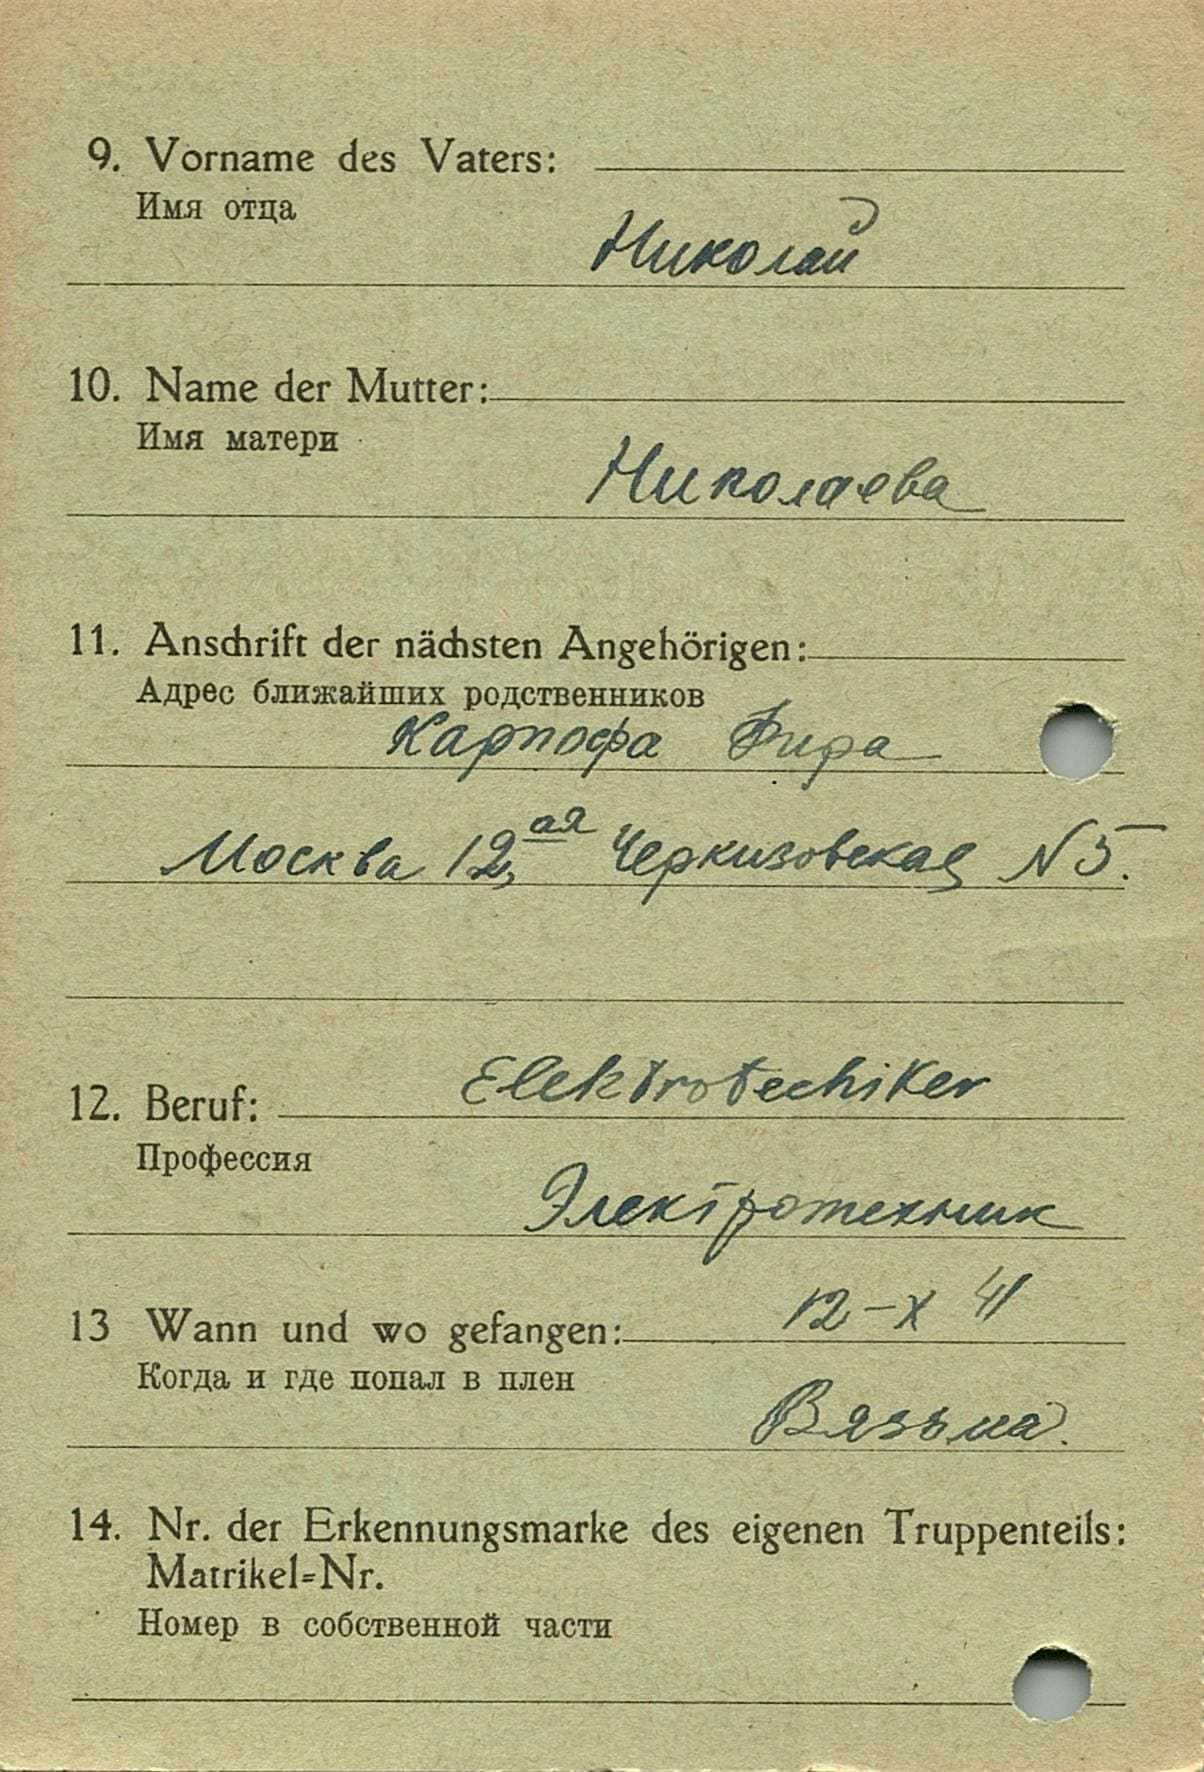 9. Vorname des Vaters:
Имя отца
Николай
10. Name der Mutter:
Имя матери
Николаева
11. Anschrift der nächsten Angehörigen:
Адрес ближайших родственников
Карпофа Фира
Москва 12ая Черкизовская N 5.
Elektrotechiker
12. Beruf:
Профессия
Электротехник
12-X 41
13 Wann und wo gefangen:
Когда и где попал в плен
Вязьма.
14. Nr. der Erkennungsmarke des eigenen Truppenteils:
Matrikel=Nr.
Номер в собственной части